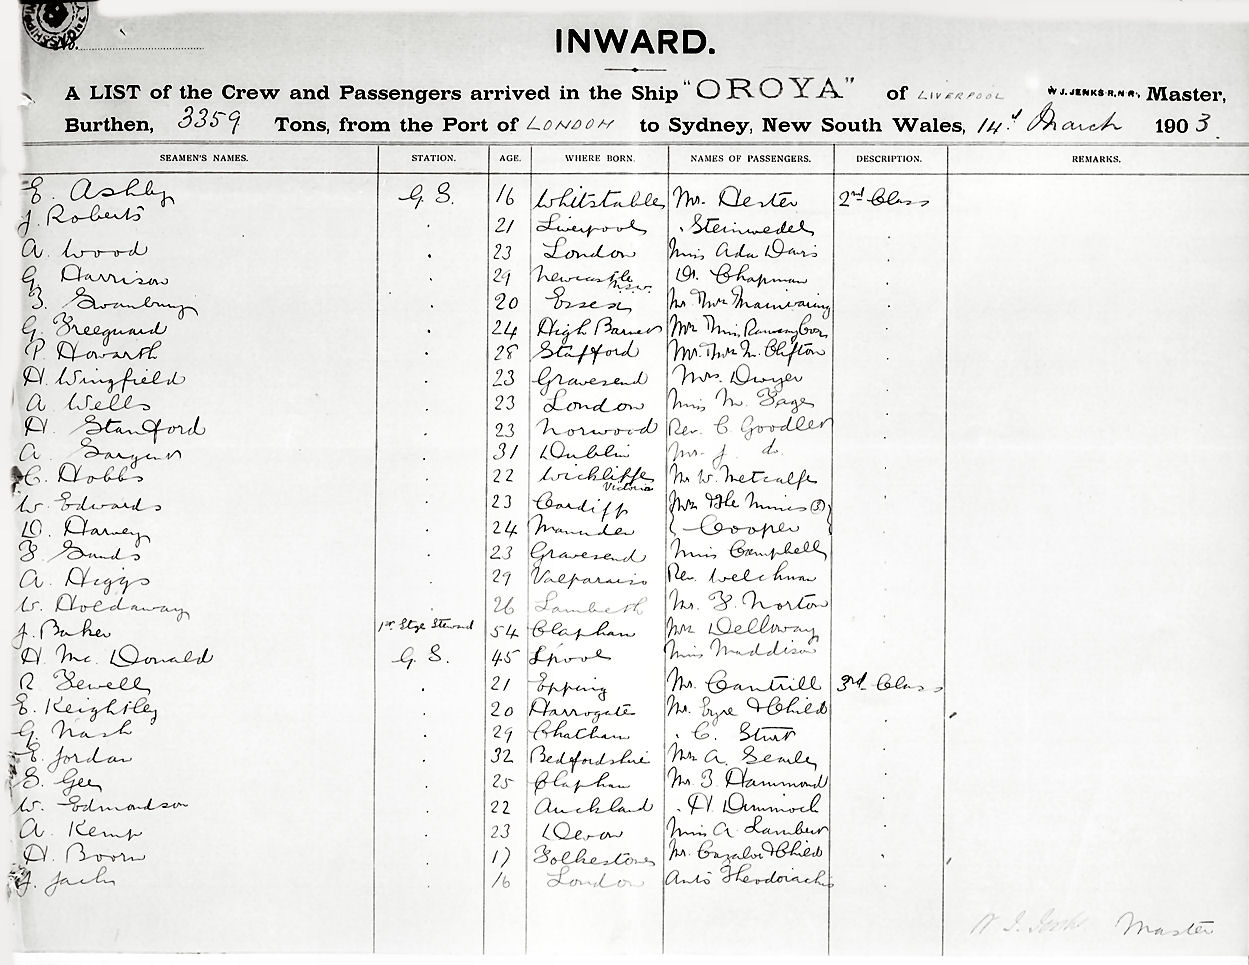 INWARD.
A LIST of the Crew and Passengers arrived in the Ship "OROYA" of LIVERPOOL W.J. JENKS R.N.R., Master,
Burthen, 3359 Tons, from the Port of LONDON to Sydney, New South Wales, 14th March 1903.
SEAMEN'S NAMES. STATION. AGE. WHERE BORN. NAMES OF PASSENGERS. DESCRIPTION. REMARKS.
E. Ashby G. S. 16 Whitstable Mr. Hester 2nd Class
J. Roberts . 21 Liverpool . Steinwedel
A. Wood . 23 London Miss Ada Davis
G. Harrison . 29 Newcastle N.S.W. Dr. Chapman
F. Swanbury . 20 Essex Mr. & Mrs Mainwaring
G. Freeguard . 24 High Barnet Mrs & Miss
P. Howarth . 28 Stafford Mr. & Mrs M. Clifton
H. Wingfield . 23 Gravesend Mrs. Dwyer
A. Wells . 23 London Miss M. Page
H. Stanford . 23 Norwood Rev. C. Goodler
A. Sargent . 31 Dublin Mr. J. do.
C. Hobbs . 22 Wickliffe Victoria Mr W. Metcalfe
W. Edwards . 23 Cardiff Mrs & the Misses (3)
D. Harvey . 24 Cooper
F. Sands . 23 Gravesend Miss Campbell
A. Higgs . 29 Valparaiso Rev. Welchman
W. Holdaway . 26 Lambeth Mr. F. Norton
J. Baker 1st Stge Steward 54 Clapham Mrs Delloway
H. Mc. Donald G. S. 45 Lpool Miss Maddison
R Fewell . 21 Epping Mr. Cantrill 3rd Class
E. Keightley . 20 Harrogate Mr. Eyre & Child
G. Nash . 29 Chatham . C. Sturt
E. Jordan . 32 Bedfordshire Mrs A.
S. Gee . 25 Clapham Mr. F. Hammond
W. Edmondson . 22 Auckland . H Dimmock
A. Kemp . 23 Devon Miss A. Lambert
H. Boorn . 17 Folkestone Mr. & Child
J. 16 London
W. J. Jenks Master